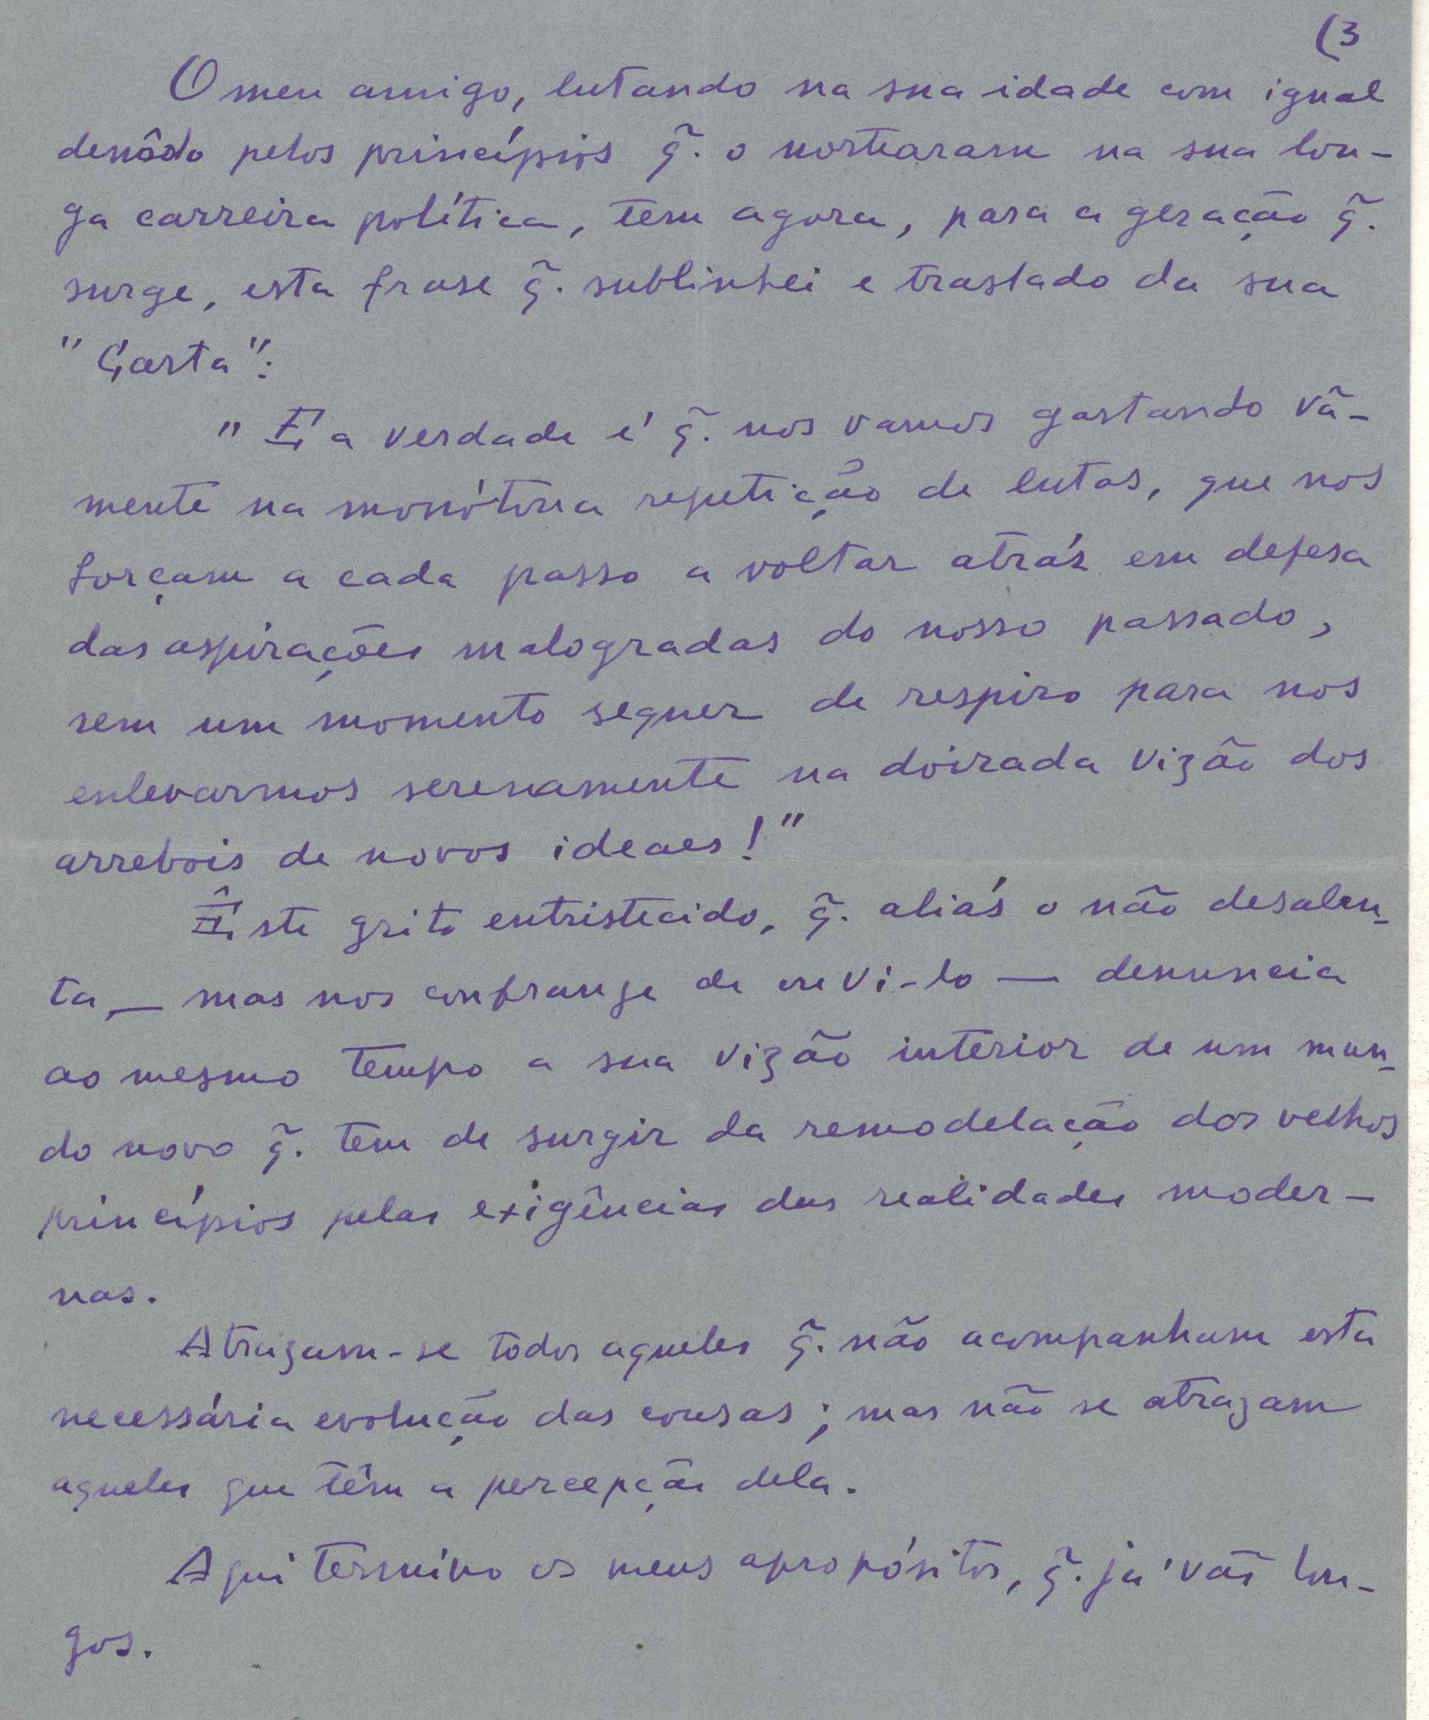 (3
O meu amigo, lutando na sua idade com igual
denôdo pelos princípios q̃. o nortearam na sua lon-
ga carreira política, tem agora, para a geração q̃.
surge, esta frase q̃. sublinhei e traslado da sua
"Carta":
"E a verdade é q̃. nos vamos gastando vã-
mente na monótona repetição de lutas, que nos
forçam a cada passo a voltar atrás em defesa
das aspirações malogradas do nosso passado,
sem um momento sequer de respiro para nos
enlevarmos serenamente na doirada vizão dos
arrebois de novos ideaes!"
Êste grito entristecido, q̃. aliás o não desalen-
ta, — mas nos confrange de ouvi-lo — denuncia
ao mesmo tempo a sua vizão interior de um mun-
do novo q̃. tem de surgir da remodelação dos velhos
princípios pelas exigências das realidades moder-
nas.
Atrazam-se todos aqueles q̃. não acompanham esta
necessária evolução das cousas; mas não se atrazam
aqueles que têm a percepção dela.
Aqui termino os meus apropósitos, q̃. já vão lon-
gos.